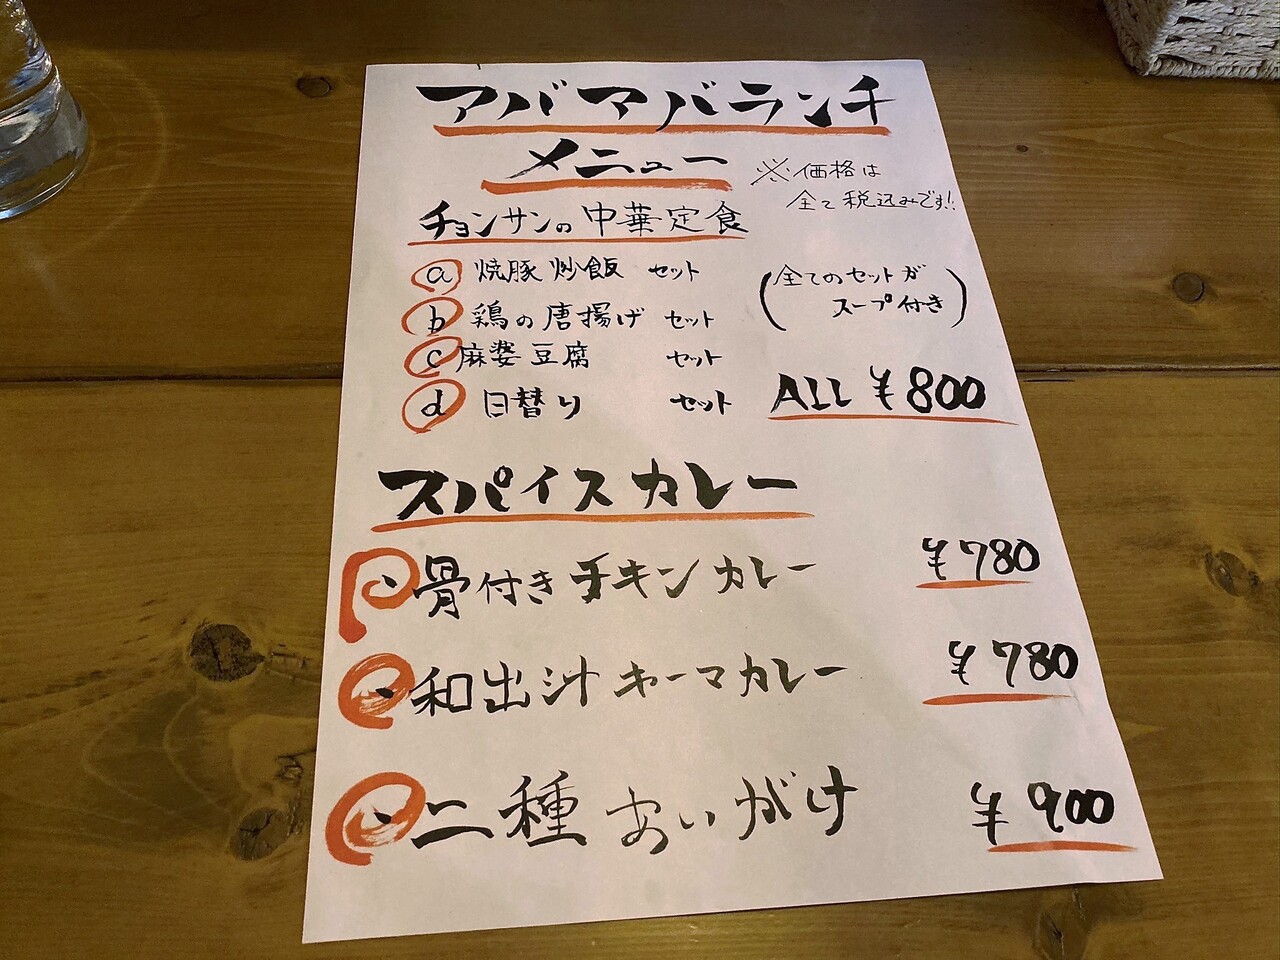 アバアバランチ
メニュー
※価格は
全て税込みです!!
チョンサンの中華定食
a 焼豚炒飯 セット
b 鶏の唐揚げ セット
c 麻婆豆腐 セット
d 日替り セット
(全てのセットが
スープ付き)
ALL ¥800
スパイスカレー
・骨付きチキンカレー ¥780
・和出汁キーマカレー ¥780
・二種あいがけ ¥900